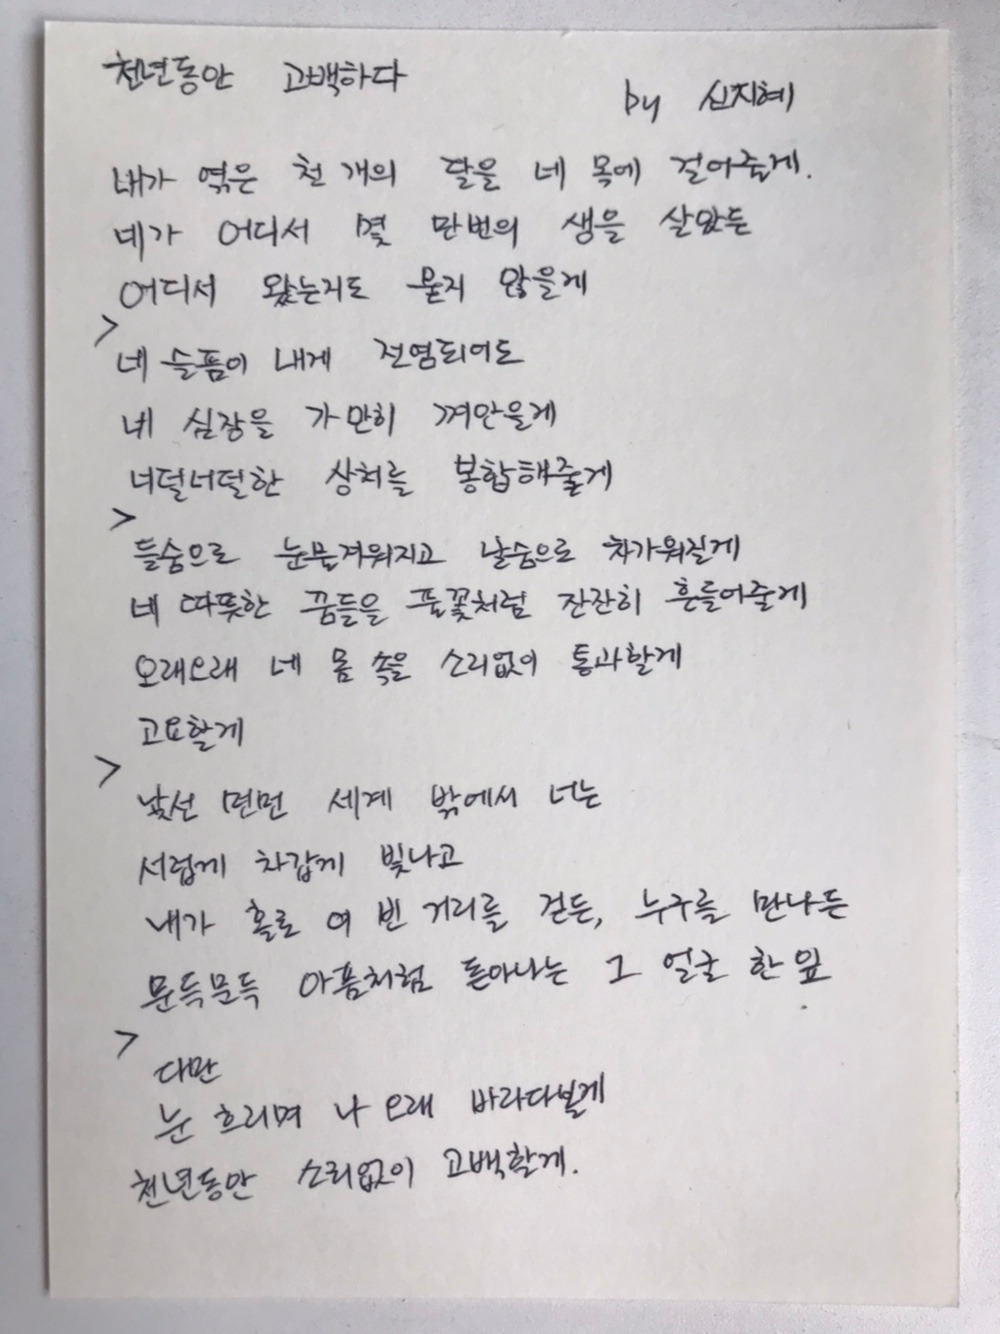 천년동안 고백하다
by 신지혜
내가 엮은 천 개의 달을 네 목에 걸어줄게.
네가 어디서 몇 만번의 생을 살았든
어디서 왔는지도 묻지 않을게
>
네 슬픔이 내게 전염되어도
네 심장을 가만히 껴안을게
너덜너덜한 상처를 봉합해줄게
>
들숨으로 눈물겨워지고 날숨으로 차가워질게
네 따뜻한 꿈들을 풀꽃처럼 잔잔히 흔들어줄게
오래오래 네 몸 속을 소리없이 통과할게
고요할게
>
낯선 먼먼 세계 밖에서 너는
서럽게 차갑게 빛나고
내가 홀로 여 빈 거리를 걷든, 누구를 만나든
문득문득 아픔처럼 돋아나는 그 얼굴 한 잎
>
다만
눈 흐리며 나 오래 바라다볼게
천년동안 소리없이 고백할게.